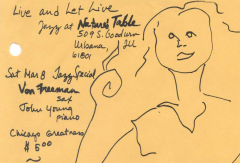 Live and Let Live
Jazz at Nature's Table
509 S. Goodwin
Urbana, Ill
61801
Sat Mar 8 Jazz Special
Von Freeman
sax
John Young
piano
Chicago Greatness
$5.00